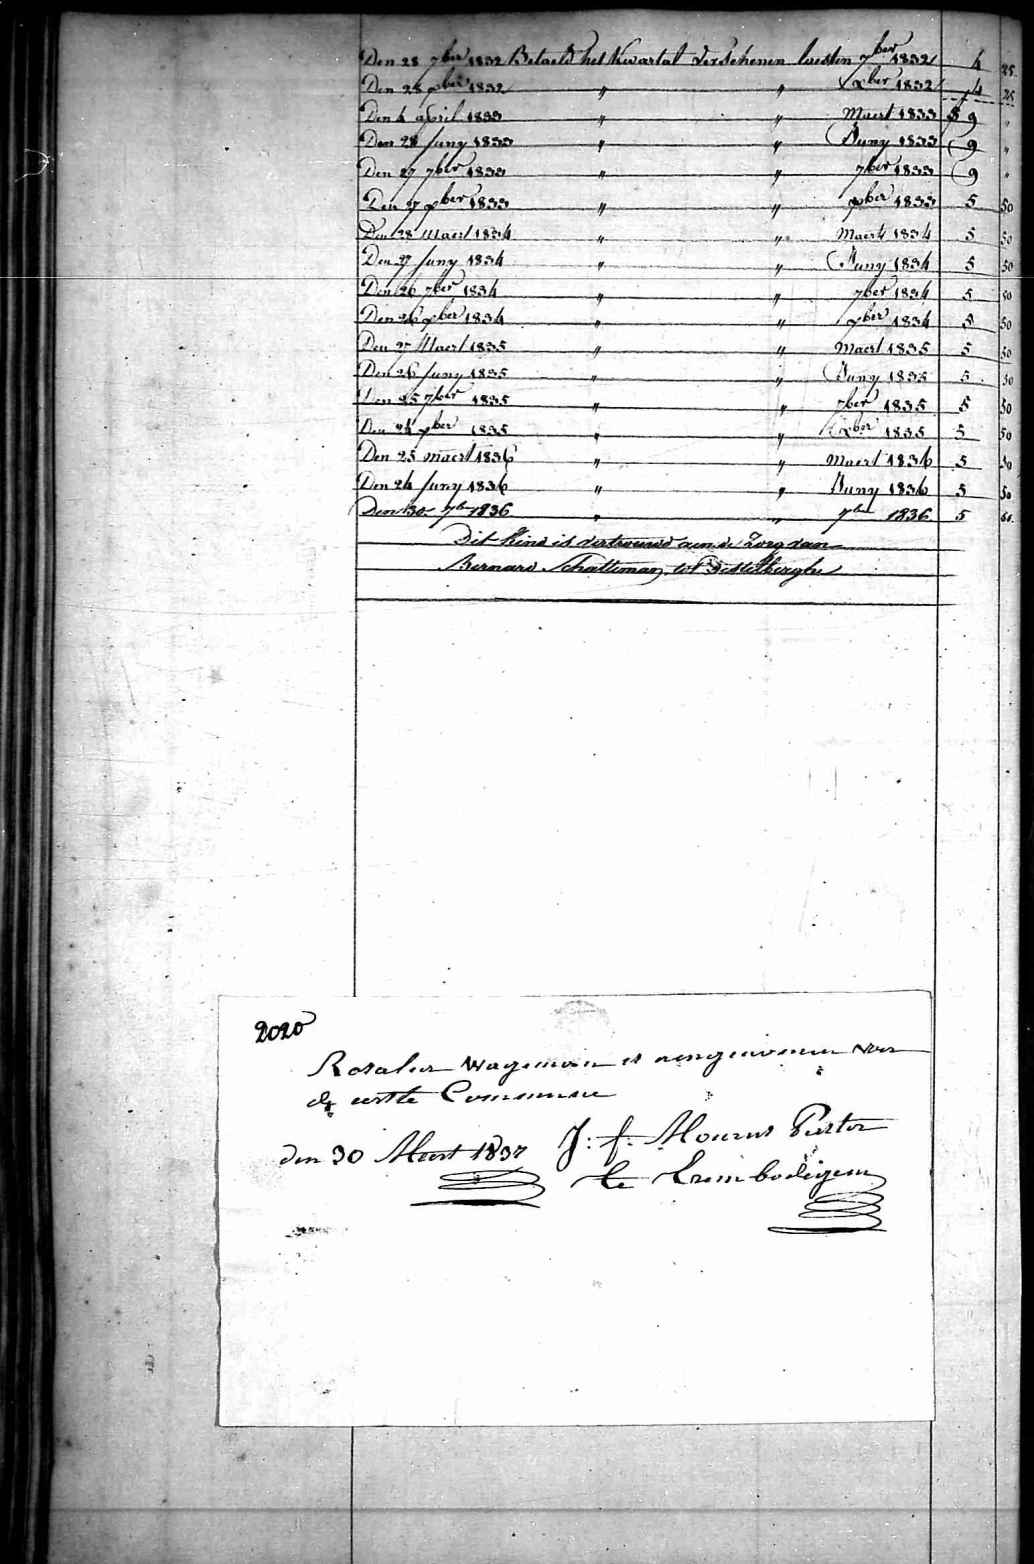 Den 28 7ber 1832 Betaeld het Kwartal verschenen loesten 7ber 1832 4 25
Den 28 xber 1832 " " xber 1832 4 25
Den 4 april 1833 " " Maert 1833 9 "
Den 28 Juny 1833 " " Juny 1833 9 "
Den 27 7ber 1833 " " 7ber 1833 9 "
Den 27 xber 1833 " " xber 1833 5 50
Den 28 Maert 1834 " " Maert 1834 5 50
Den 27 Juny 1834 " " Juny 1834 5 50
Den 26 7ber 1834 " " 7ber 1834 5 50
Den 26 xber 1834 " " xber 1834 5 50
Den 27 Maert 1835 " " Maert 1835 5 50
Den 26 Juny 1835 " " Juny 1835 5 50
Den 25 7ber 1835 " " 7ber 1835 5 50
Den 24 xber 1835 " " xber 1835 5 50
Den 25 maert 1836 " " Maert 1836 5 50
Den 24 Juny 1836 " " Juny 1836 5 50
Den 30 7ber 1836 " " 7ber 1836 5 50
Dit kind is vertrouwd aen de Zorg van
Bernard Schatteman, tot Destelberghe
2020
Rosalia Wageman is aengenomen voor
de eerste Commune
den 30 Meert 1837 J: f. Pastor
te Lrembodegem